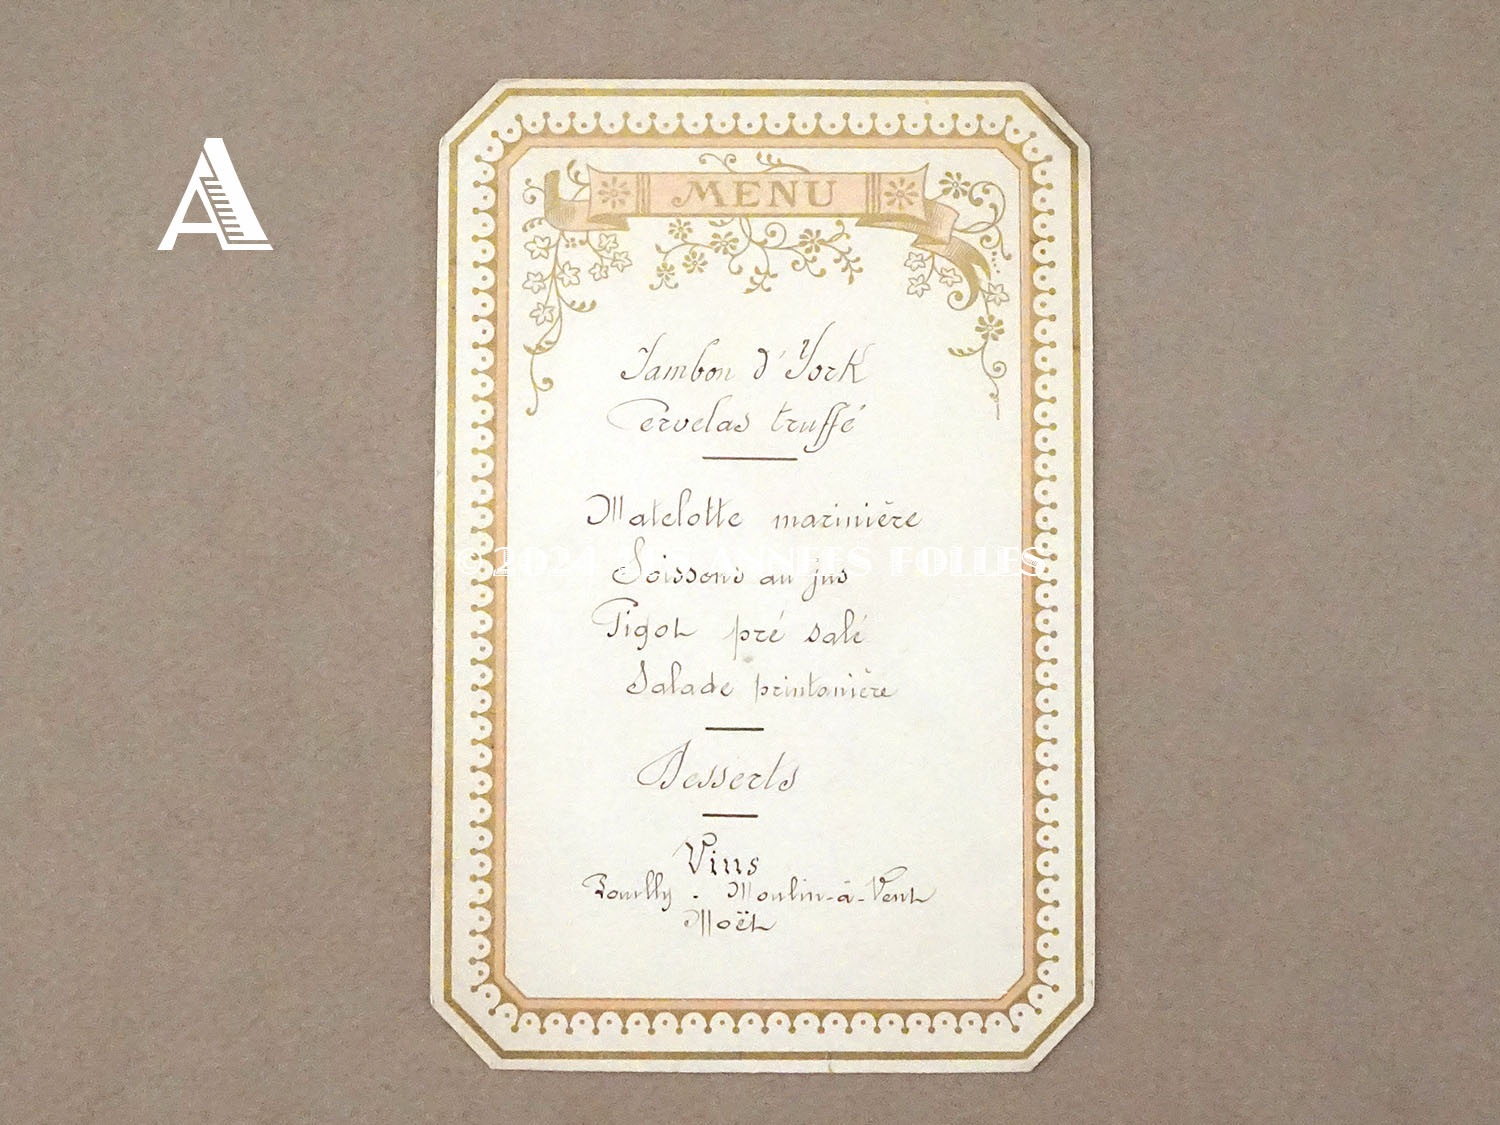 A
MENU
Jambon d'York
Cervelas truffé
Matelotte marinière
© 2024 LES ANNEES FOLLES
Soissons au jus
Gigot pré salé
Salade printanière
Desserts
Vins
Pouilly - Moulin-à-Vent
Moët